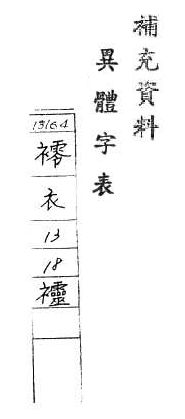 補充資料
異體字表
13164
衣
13
18